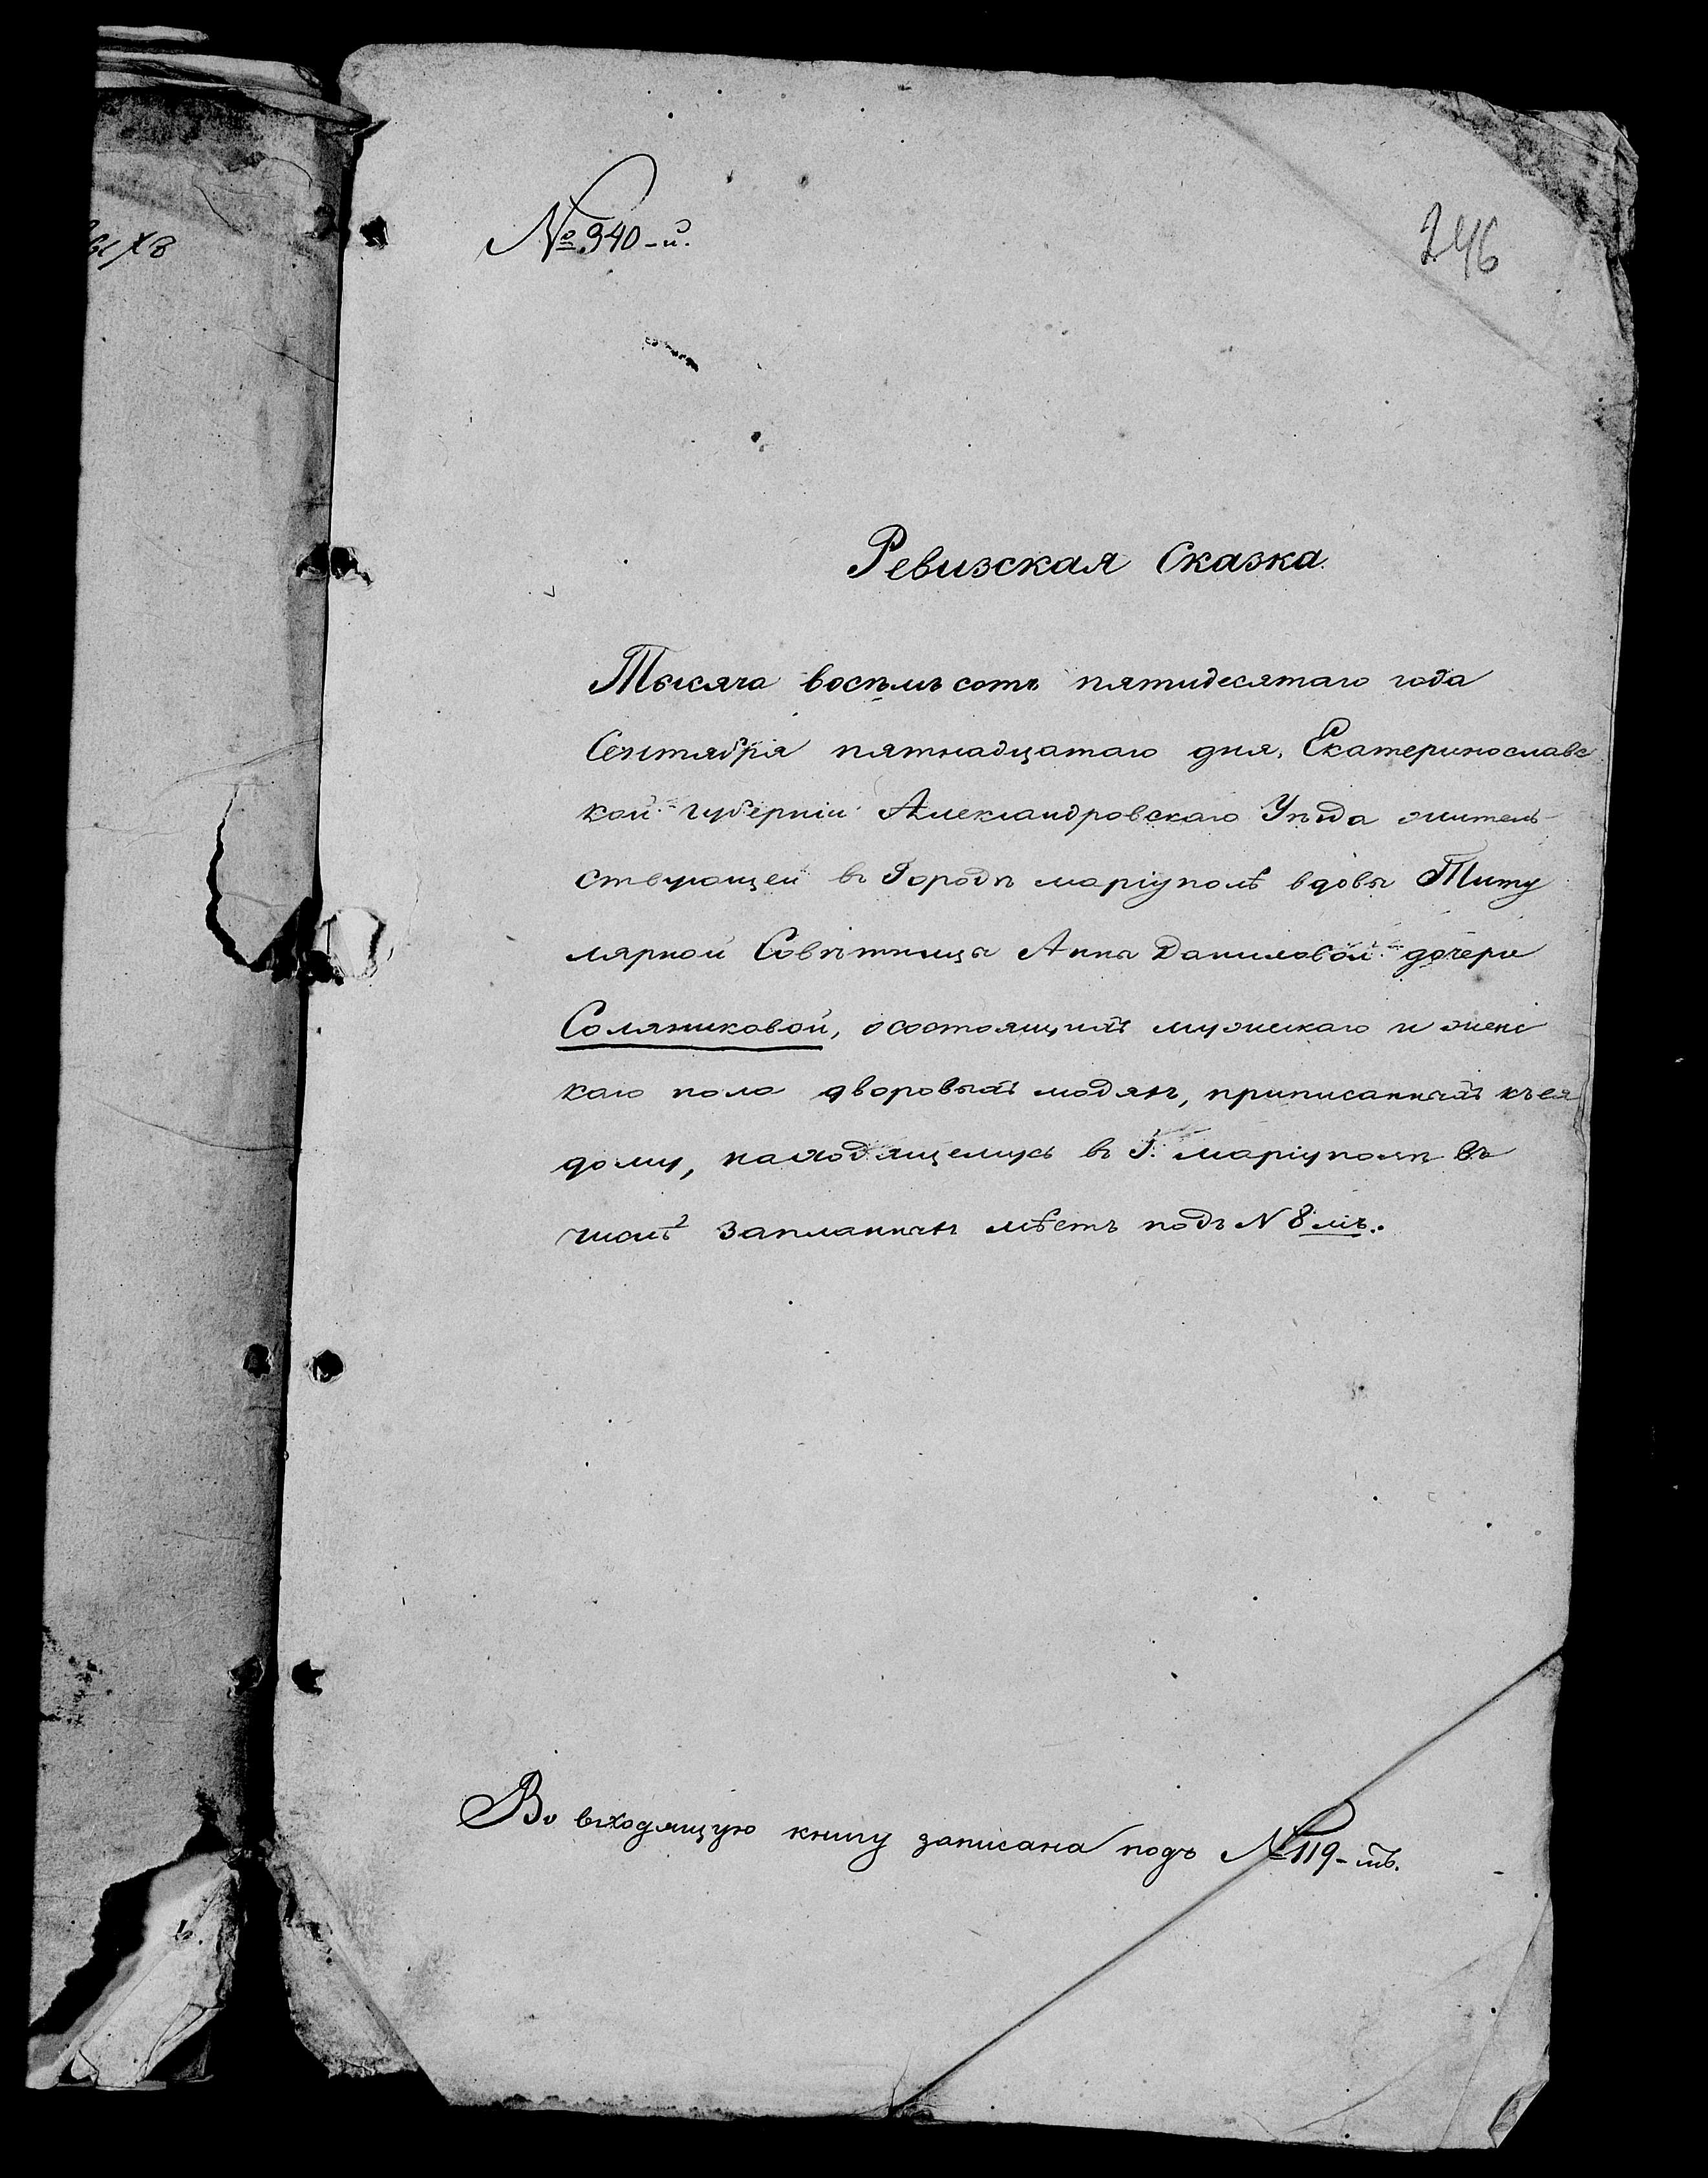 № 940-й.
246
ыхъ
Ревизская Сказка.
Тысяча восемь сотъ пятидесятаго года
Сентября пятнадцатаго дня, Екатеринославс
кой губерніи Александровскаго Уѣзда житель-
ствующей въ Городѣ маріуполѣ вдовы Титу
лярной Совѣтницы Анны Даниловой дочери
Солянниковой, о состоящихъ мужескаго и женс
каго пола дворовыхъ людяхъ, приписанныхъ къ ея
дому, находящемуся въ Г. маріуполѣ въ
числѣ запланныхъ мѣстъ подъ N 8мъ.
Во входящую книгу записана подъ № 119-мъ.